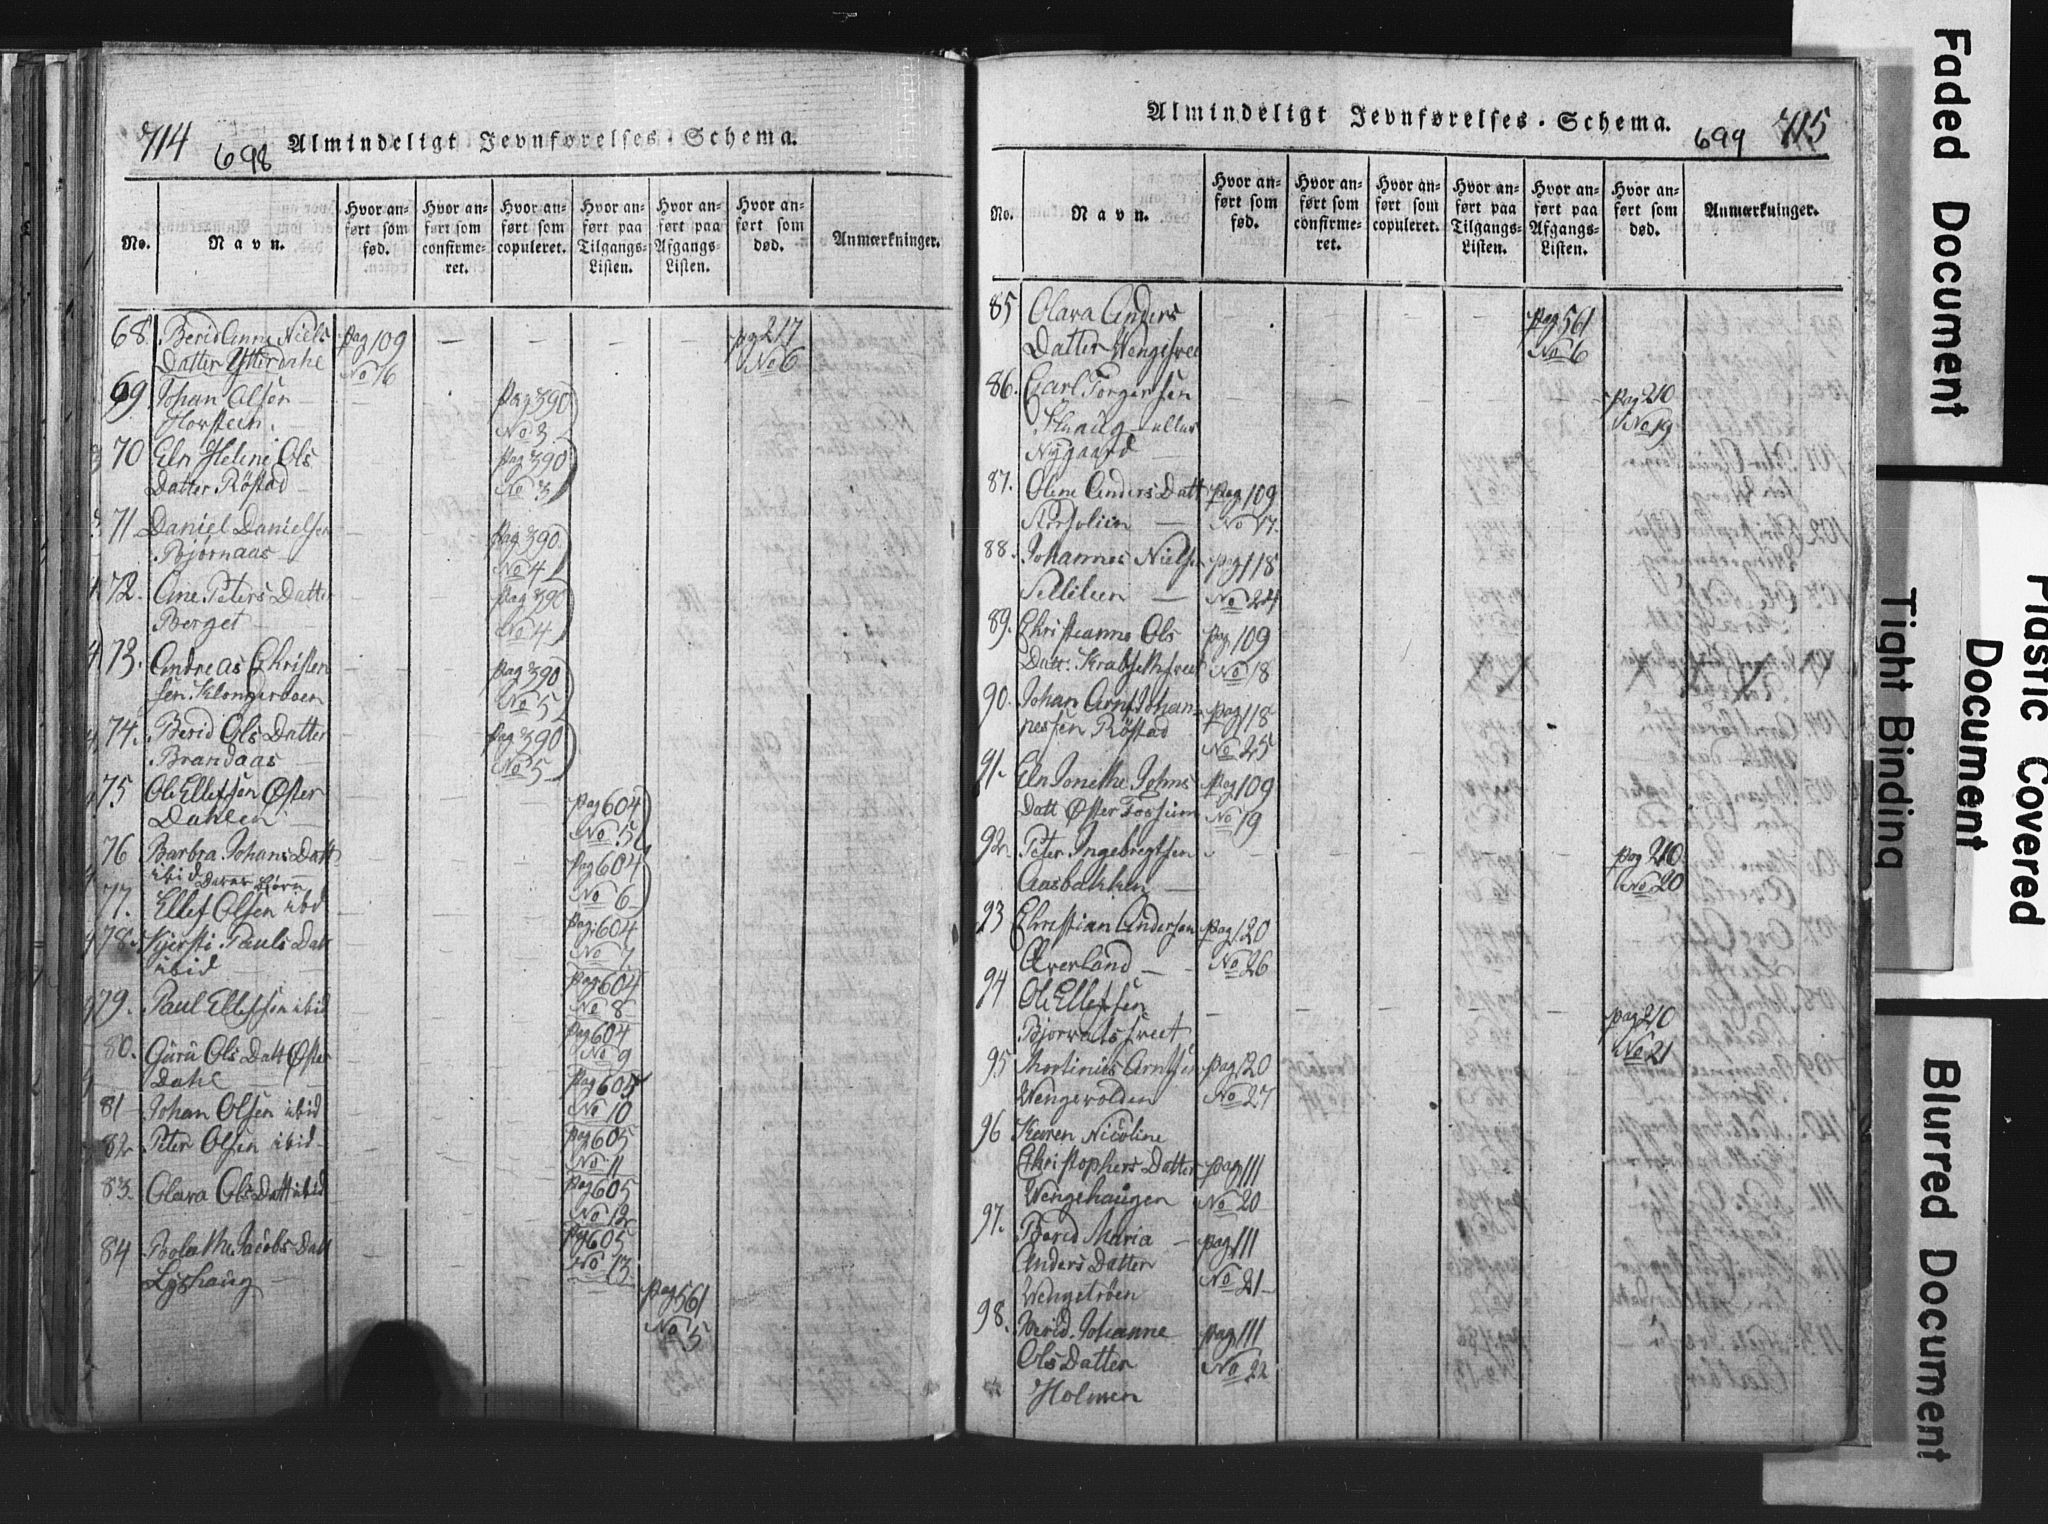 714
698
Almindeligt Jevnførelses-Schema.
No.
Navn.
Hvor anført som fød.
Hvor anført som confirmeret.
Hvor anført som copuleret.
Hvor anført paa Tilgangs-Listen.
Hvor anført paa Afgangs-Listen.
Hvor anført som død.
Anmærkninger.
68. Berid Anne Niels pag 109 pag 217
Datter Ytterdahl No 16 No 6
69 Johan Olsen pag 390
Horstein. No 3
70 Eln Helene Ols pag 390
Datter Röstad No 3
71 Daniel Danielsen pag 390
Bjørnaas No 4
72. Ane Peters Datter pag 390
Berget No 4
73. Andreas Christen pag 390
sen Klongerboen No 5
74. Berid Ols Datter pag 390
Brandaas No 5
75 Ole Ellefsen Øster pag 604
Dahlen No 5
76 Barbra Johans Datt pag 604
ibid Deres Børn No 6
77. Ellef Olsen ibd pag 604
No 7
78. Kjersti Pauls Datt
ibid pag 604
79. Paul Ellefsen ibid No 8
pag 604
80. Guru Ols Datt Øster No 9
Dahl pag 605
81 Johan Olsen ibid No 10
82 Peter Olsen ibid pag 605
No 11
83. Olava Ols Datt ibid pag 605
No 12
84 Jacobs Datt pag 605
Lyshaug No 13
pag 561
No 5
Almindeligt Jevnførelses-Schema.
699
715
No.
Navn.
Hvor anført som fød.
Hvor anført som confirmeret.
Hvor anført som copuleret.
Hvor anført paa Tilgangs-Listen.
Hvor anført paa Afgangs-Listen.
Hvor anført som død.
Anmærkninger.
85 Olava Anders pag 561
Datter No 6
86. Carl Torgersen pag 210
eller No 19
Nygaard
87. Oline Anders Datt pag 109
No 17
88. Johannes Niels pag 118
No 24
89. Christianne Ols pag 109
Datt. No 18
90. Johan Arnt Johan- pag 118
nessen Röstad No 25
91. Eln Jonethe Johns pag 109
Datt Øster Fossum No 19
92 Peter Ingebregtsen pag 210
Aasbakken No 20
93 Christian Andersen pag 120
Overland No 26
94 Ole Ellefsen pag 210
No 21
95. Mortinus Arntsen pag 120
Wengsvolden No 27
96 Karen Nicoline
Christophers Datter pag 111
Wengshaugen No 20
97. Berid Maria pag 111
Anders Datter No 21
98. Berid Johanne pag 111
Ols Datter No 22
Holmen
Faded Document
Tight Binding
Plastic Covered
Document
Blurred Document